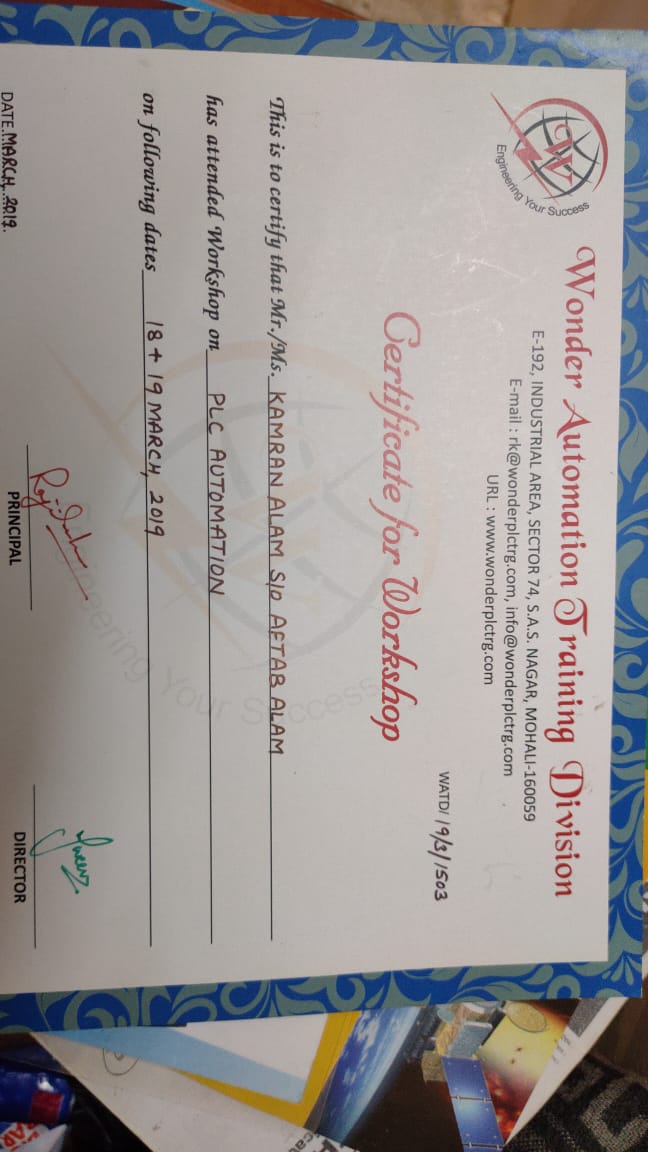 Engineering Your Success
Wonder Automation Training Division
E-192, INDUSTRIAL AREA, SECTOR 74, S.A.S. NAGAR, MOHALI-160059
E-mail : rk@wonderplctrg.com, info@wonderplctrg.com
URL : www.wonderplctrg.com
WATD/ 19/3/1503
Certificate for Workshop
This is to certify that Mr./Ms. KAMRAN ALAM S/o AFTAB ALAM
has attended Workshop on PLC AUTOMATION
on following dates 18 + 19 MARCH, 2019
Engineering Your Success
DATE. MARCH, 2019.
PRINCIPAL
DIRECTOR